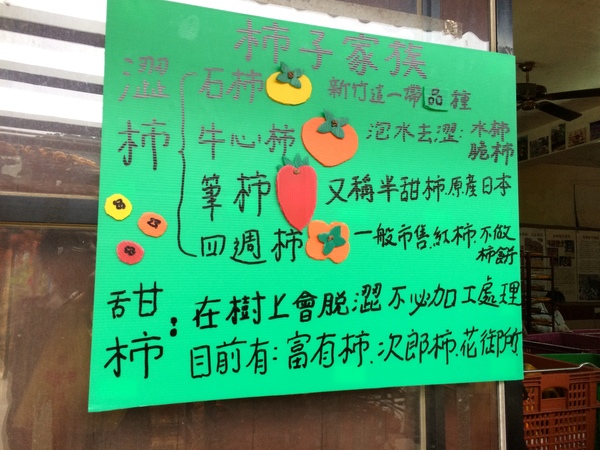 柿子家族
澀柿
石柿 新竹這一帶品種
牛心柿 泡水去澀:水柿 脆柿
筆柿 又稱半甜柿.原產日本
四週柿 一般市售.紅柿.不做柿餅
甜柿:在樹上會脫澀 不必加工處理
目前有:富有柿.次郎柿.花御所